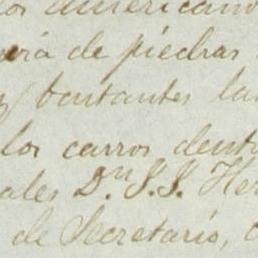 los americano
de piedras
bastantes la
los carros dent
ales Dn J. J. Her
de Secretario,